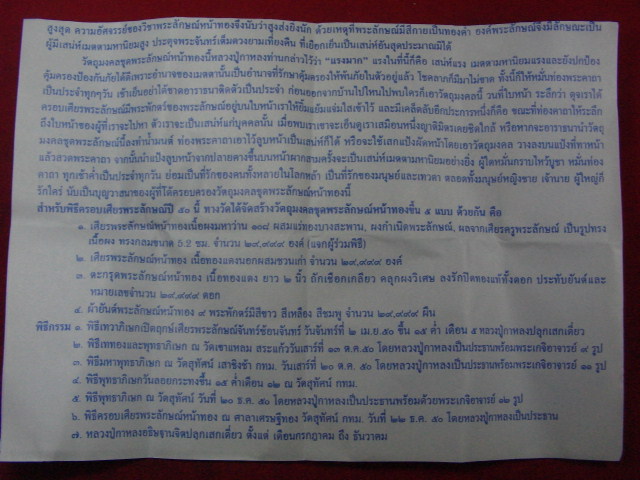 สูงสุด ความอัศจรรย์ของวิชาพระลักษณ์หน้าทองจึงนับว่าสูงส่งยิ่งนัก ด้วยเหตุที่พระลักษณ์มีสีกายเป็นทองคำ องค์พระลักษณ์จึงมีลักษณะเป็น
ผู้มีเสน่ห์เมตตามหานิยมสูง ประดุจพระจันทร์เต็มดวงยามเที่ยงคืน ที่เยือกเย็นเป็นเสน่ห์อันสุดประมาณมิได้
วัตถุมงคลชุดพระลักษณ์หน้าทองนี้หลวงปู่กาหลงท่านกล่าวไว้ว่า "แรงมาก" แรงในที่นี้ก็คือ เสน่ห์แรง เมตตามหานิยมแรงและยังปกป้อง
คุ้มครองป้องกันภัยได้ดีเพราะอำนาจของเมตตานั้นเป็นอำนาจที่รักษาคุ้มครองให้พ้นภัยในตัวอยู่แล้ว โชคลาภก็มีมาไม่ขาด ทั้งนี้ก็ให้หมั่นท่องพระคาถา
เป็นประจำทุกๆวัน เช้าเย็นอย่าได้ขาดอาราธนาติดตัวเป็นประจำ ก่อนออกจากบ้านไปไหนไปพบใครก็เอาวัตถุมงคลนี้ วนที่ใบหน้า ระลึกว่า ดุจเราได้
ครอบเศียรพระลักษณ์มีพระพักตร์ของพระลักษณ์อยู่บนใบหน้าเราให้ยิ้มแย้มแจ่มใสเข้าไว้ และมีเคล็ดลับอีกประการหนึ่งก็คือ ขณะที่ท่องคาถาให้ระลึก
ถึงใบหน้าของผู้ที่เราจะไปหา ตัวเราจะเป็นเสน่ห์แก่บุคคลนั้น เมื่อพบเราเขาจะเอ็นดูเราเสมือนหนึ่งญาติมิตรเคยชิดใกล้ หรือหากจะอาราธนานำวัตถุ
มงคลชุดพระลักษณ์นี้ลงทำน้ำมนต์ ท่องพระคาถาเอาไว้ลูบหน้าเป็นเสน่ห์ก็ได้ หรือจะใช้เสกแป้งผัดหน้าโดยเอาวัตถุมงคล วางลงบนแป้งที่ทาหน้า
แล้วสวดพระคาถา จากนั้นนำแป้งลูบหน้าจากปลายคางขึ้นบนหน้าผากสามครั้งจะเป็นเสน่ห์เมตตามหานิยมอย่างยิ่ง ผู้ใดหมั่นกราบไหว้บูชา หมั่นท่อง
คาถา ทุกเช้าค่ำเป็นประจำทุกวัน ย่อมเป็นที่รักของคนทั้งหลายในโลกหล้า เป็นที่รักของมนุษย์และเทวดา ตลอดทั้งมนุษย์หญิงชาย เจ้านาย ผู้ใหญ่ก็
รักใคร่ นับเป็นบุญวาสนาของผู้ที่ได้ครอบครองวัตถุมงคลชุดพระลักษณ์หน้าทองนี้
สำหรับพิธีครอบเศียรพระลักษณ์ปี ๕๐ นี้ ทางวัดได้จัดสร้างวัตถุมงคลชุดพระลักษณ์หน้าทองขึ้น ๕ แบบ ด้วยกัน คือ
๑. เศียรพระลักษณ์หน้าทองเนื้อผงมหาว่าน ๑๐๘ ผสมแร่ทองบางสะพาน, ผงกำเนิดพระลักษณ์, ผลจากเศียรครูพระลักษณ์ เป็นรูปทรง
เนื้อผง ทรงกลมขนาด 5.2 ซม. จำนวน ๒๙,๙๙๙ องค์ (แจกผู้ร่วมพิธี)
๒. เศียรพระลักษณ์หน้าทอง เนื้อทองแดงนอกผสมชวนเก่า จำนวน ๒๙,๙๙๙ องค์
๓. ตะกรุดพระลักษณ์หน้าทอง เนื้อทองแดง ยาว ๒ นิ้ว ถักเชือกเกลียว คลุกผงวิเศษ ลงรักปิดทองแท้ทั้งดอก ประทับยันต์และ
หมายเลขจำนวน ๒๙,๙๙๙ ดอก
๔. ผ้ายันต์พระลักษณ์หน้าทอง ๙ พระพักตร์มีสีขาว สีเหลือง สีชมพู จำนวน ๒๙,๙๙๙ ผืน
พิธีกรรม ๑. พิธีเทวาภิเษกเปิดฤกษ์เศียรพระลักษณ์จันทร์ซ้อนจันทร์ วันจันทร์ที่ ๒ เม.ย.๕๐ ขึ้น ๑๕ ค่ำ เดือน ๕ หลวงปู่กาหลงปลุกเสกเดี่ยว
๒. พิธีเททองและพุทธาภิเษก ณ วัดเขาแหลม สระแก้ววันเสาร์ที่ ๑๓ ต.ค.๕๐ โดยหลวงปู่กาหลงเป็นประธานพร้อมพระเกจิอาจารย์ ๙ รูป
๓. พิธีมหาพุทธาภิเษก ณ วัดสุทัศน์ เสาชิงช้า กทม. วันเสาร์ที่ ๒๐ ต.ค. ๕๐ โดยหลวงปู่กาหลงเป็นประธานพร้อมพระเกจิอาจารย์ ๑๑ รูป
๔. พิธีพุทธาภิเษกวันลอยกระทงขึ้น ๑๕ ค่ำเดือน ๑๒ ณ วัดสุทัศน์ กทม.
๕. พิธีพุทธาภิเษก ณ วัดสุทัศน์ วันที่ ๒๐ ธ.ค. ๕๐ โดยหลวงปู่กาหลงเป็นประธานพร้อมด้วยพระเกจิอาจารย์ ๑๒ รูป
๖. พิธีครอบเศียรพระลักษณ์หน้าทอง ณ ศาลาเศรษฐีทอง วัดสุทัศน์ กทม. วันที่ ๒๒ ธ.ค. ๕๐ โดยหลวงปู่กาหลงเป็นประธาน
๗. หลวงปู่กาหลงอธิษฐานจิตปลุกเสกเดี่ยว ตั้งแต่ เดือนกรกฎาคม ถึง ธันวาคม